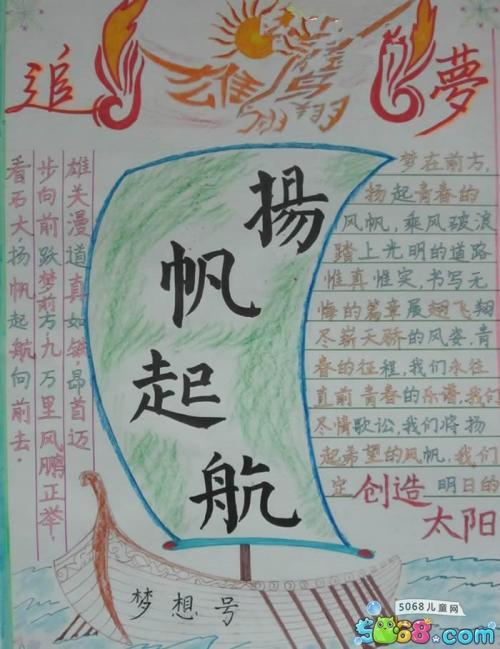 追夢
揚帆起航
雄关漫道真如铁,昂首迈
步向前跃,梦前方九万里风鹏正举!
看石大,扬帆起航向前去。
梦在前方,
扬起青春的
风帆,乘风破浪
踏上光明的道路
惟真惟实,书写无
悔的篇章展翅飞翔
尽崭天骄的风姿,青
春的征程,我们永往
直前青春的乐谱,我们
尽情歌讼,我们将扬
起希望的风帆,我们
定创造明日的
太阳
梦想号
5068儿童网
5068.com